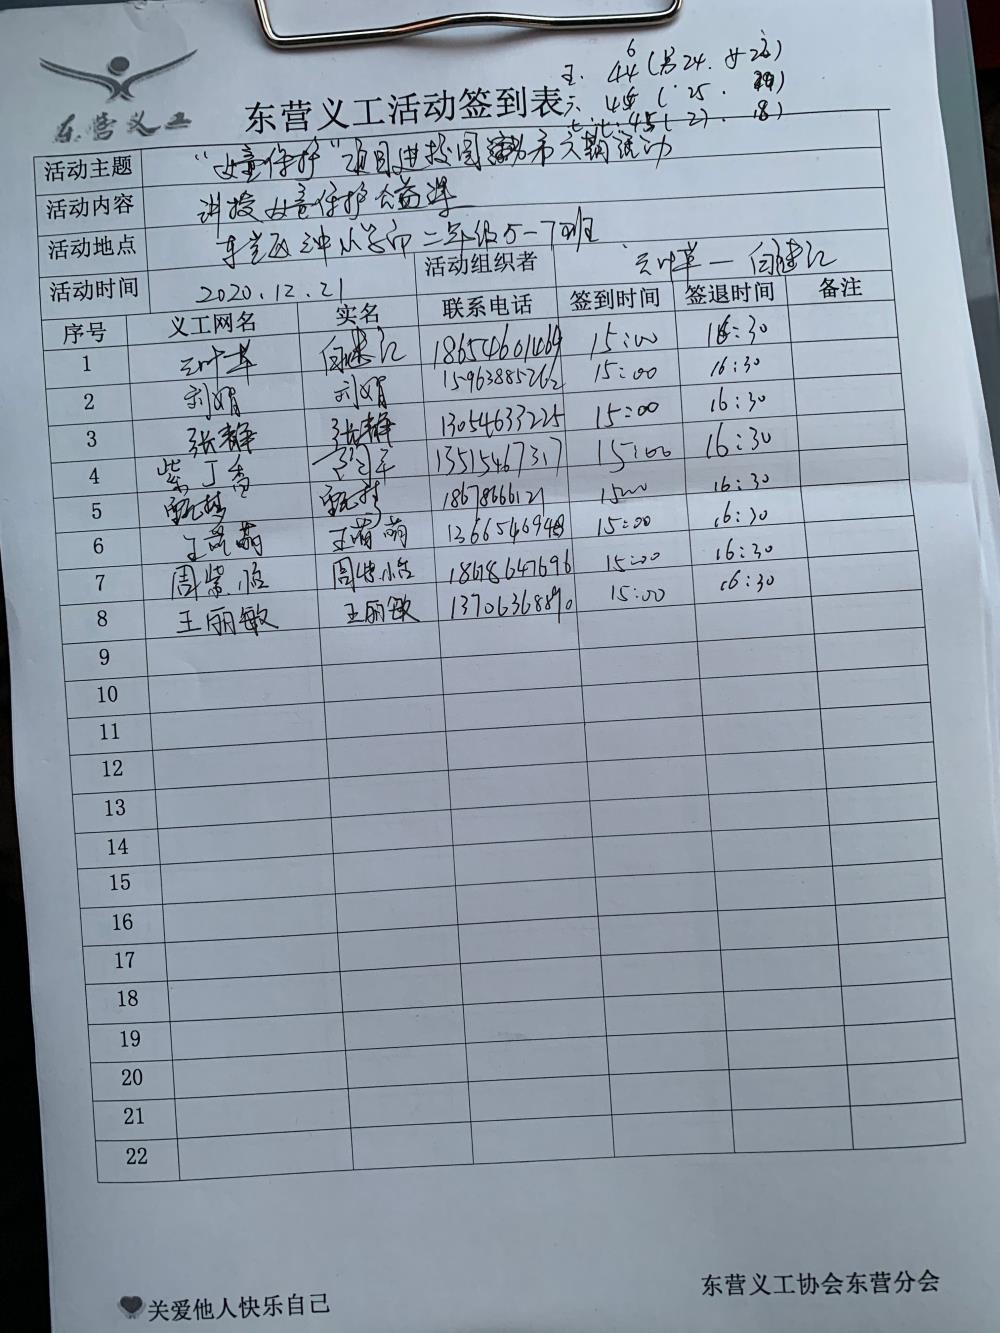 东营义工
东营义工活动签到表
五. 44(男24. 女20)
六 45( 25.
七. 45(27. 18)
活动主题 "女童保护"项目进校园 第六期活动
活动内容 讲授女童保护公益课
活动地点 二年级5-7班
活动时间 2020.12.21 活动组织者 三叶草—
序号 义工网名 实名 联系电话 签到时间 签退时间 备注
1 三叶草 18654601469 15:00 16:30
2 刘娟 刘娟 15963885262 15:00 16:30
3 张静 张静 13054633225 15:00 16:30
4 紫丁香 13515467317 15:00 16:30
5 甄楠 甄楠 1867866121 15:00 16:30
6 王萌萌 王萌萌 13665469 15:00 16:30
7 周紫 周紫 18678647696 15:00 16:30
8 王丽敏 王丽敏 13706368890 15:00 16:30
9
10
11
12
13
14
15
16
17
18
19
20
21
22
关爱他人快乐自己
东营义工协会东营分会